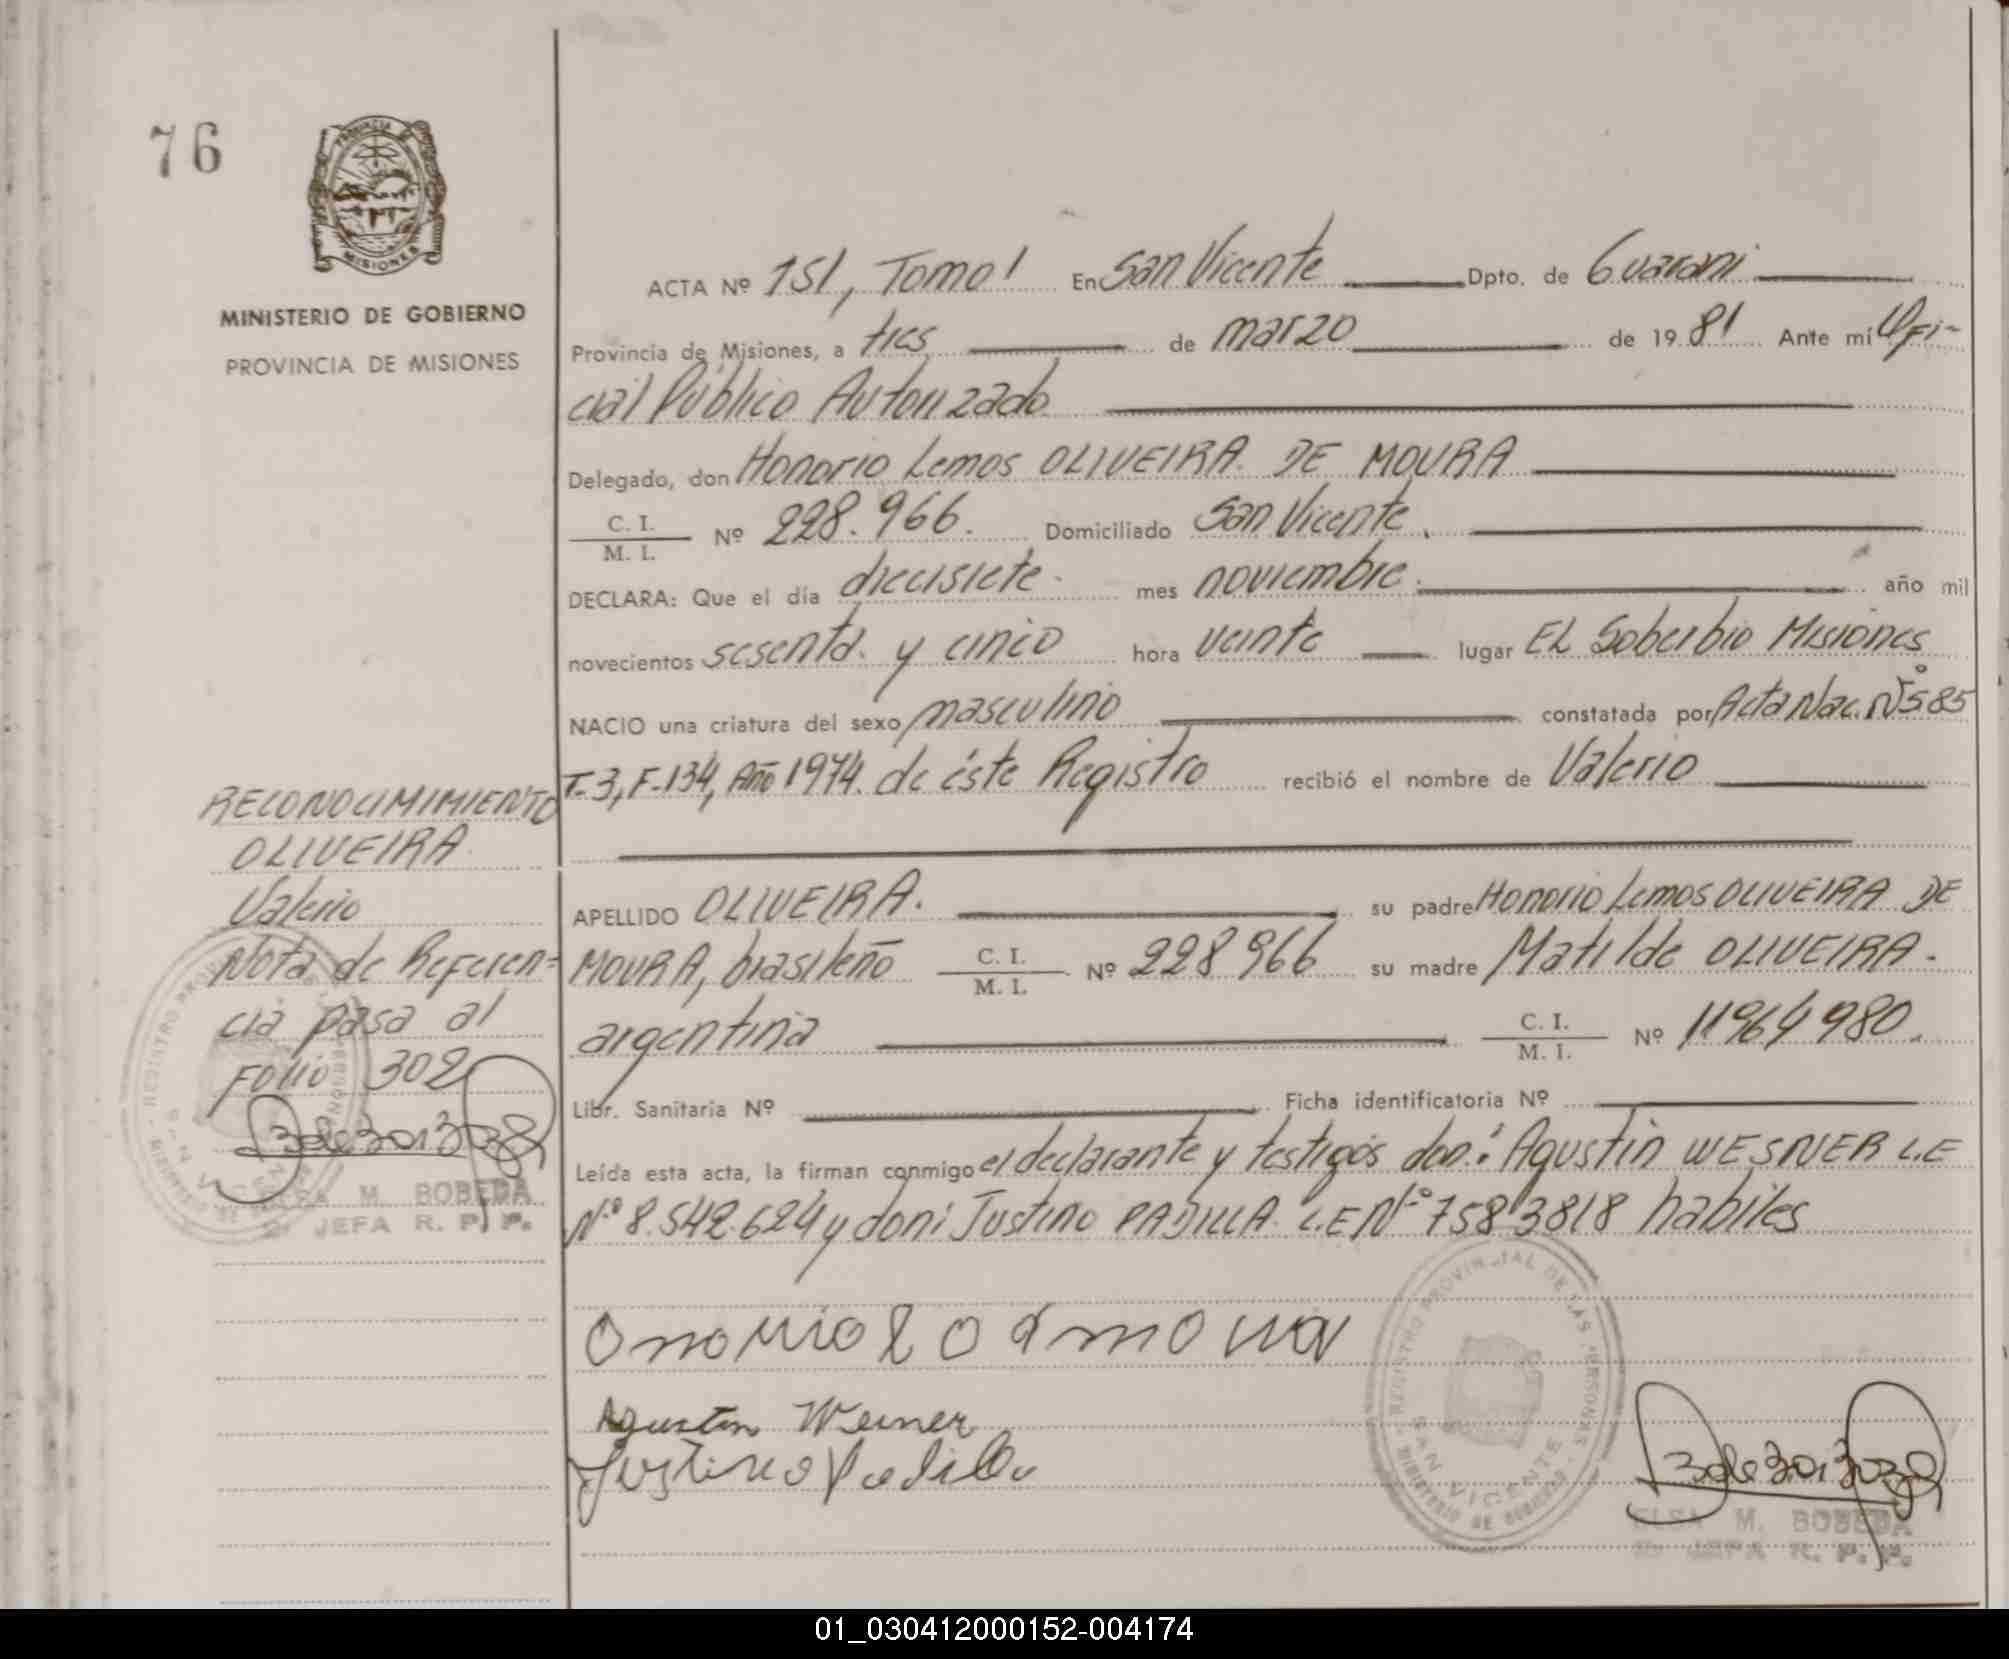 76
PROVINCIA DE
MISIONES
MINISTERIO DE GOBIERNO
PROVINCIA DE MISIONES
ACTA Nº 151, Tomo I En San Vicente Dpto. de Guaraní
Provincia de Misiones, a tres de marzo de 1981 Ante mí Ofi-
cial Público Autorizado
Delegado, don Honorio Lemos OLIVEIRA DE MOURA
C. I.
M. I. Nº 228.966. Domiciliado San Vicente.
DECLARA: Que el día diecisiete mes noviembre. año mil
novecientos sesenta y cinco hora veinte lugar EL Soberbio Misiones
NACIO una criatura del sexo masculino constatada por Acta Nac. Nº 585
T-3, F-134, Año 1974. de éste Registro recibió el nombre de Valerio
APELLIDO OLIVEIRA. su padre Honorio Lemos OLIVEIRA DE
MOURA, brasileño C. I. M. I. Nº 228966 su madre Matilde OLIVEIRA.
argentina C. I. M. I. Nº 11964980.
Libr. Sanitaria Nº Ficha identificatoria Nº
Leída esta acta, la firman conmigo el declarante y testigos don: Agustin WESNER L.E
Nº 8.542.624 y don: Justino PADILLA L.E Nº 7583818 habiles
RECONOCIMIMIENTO
OLIVEIRA
Valerio
Nota de Referen=
cia pasa al
Folio 302
ELSA M. BOBEDA
JEFA R. P. P.
Agustin Wesner
Justino Padilla
REGISTRO PROVINCIAL DE LAS PERSONAS
SAN VICENTE
MINISTERIO DE GOBIERNO
ELSA M. BOBEDA
JEFA R. P. P.
01_030412000152-004174